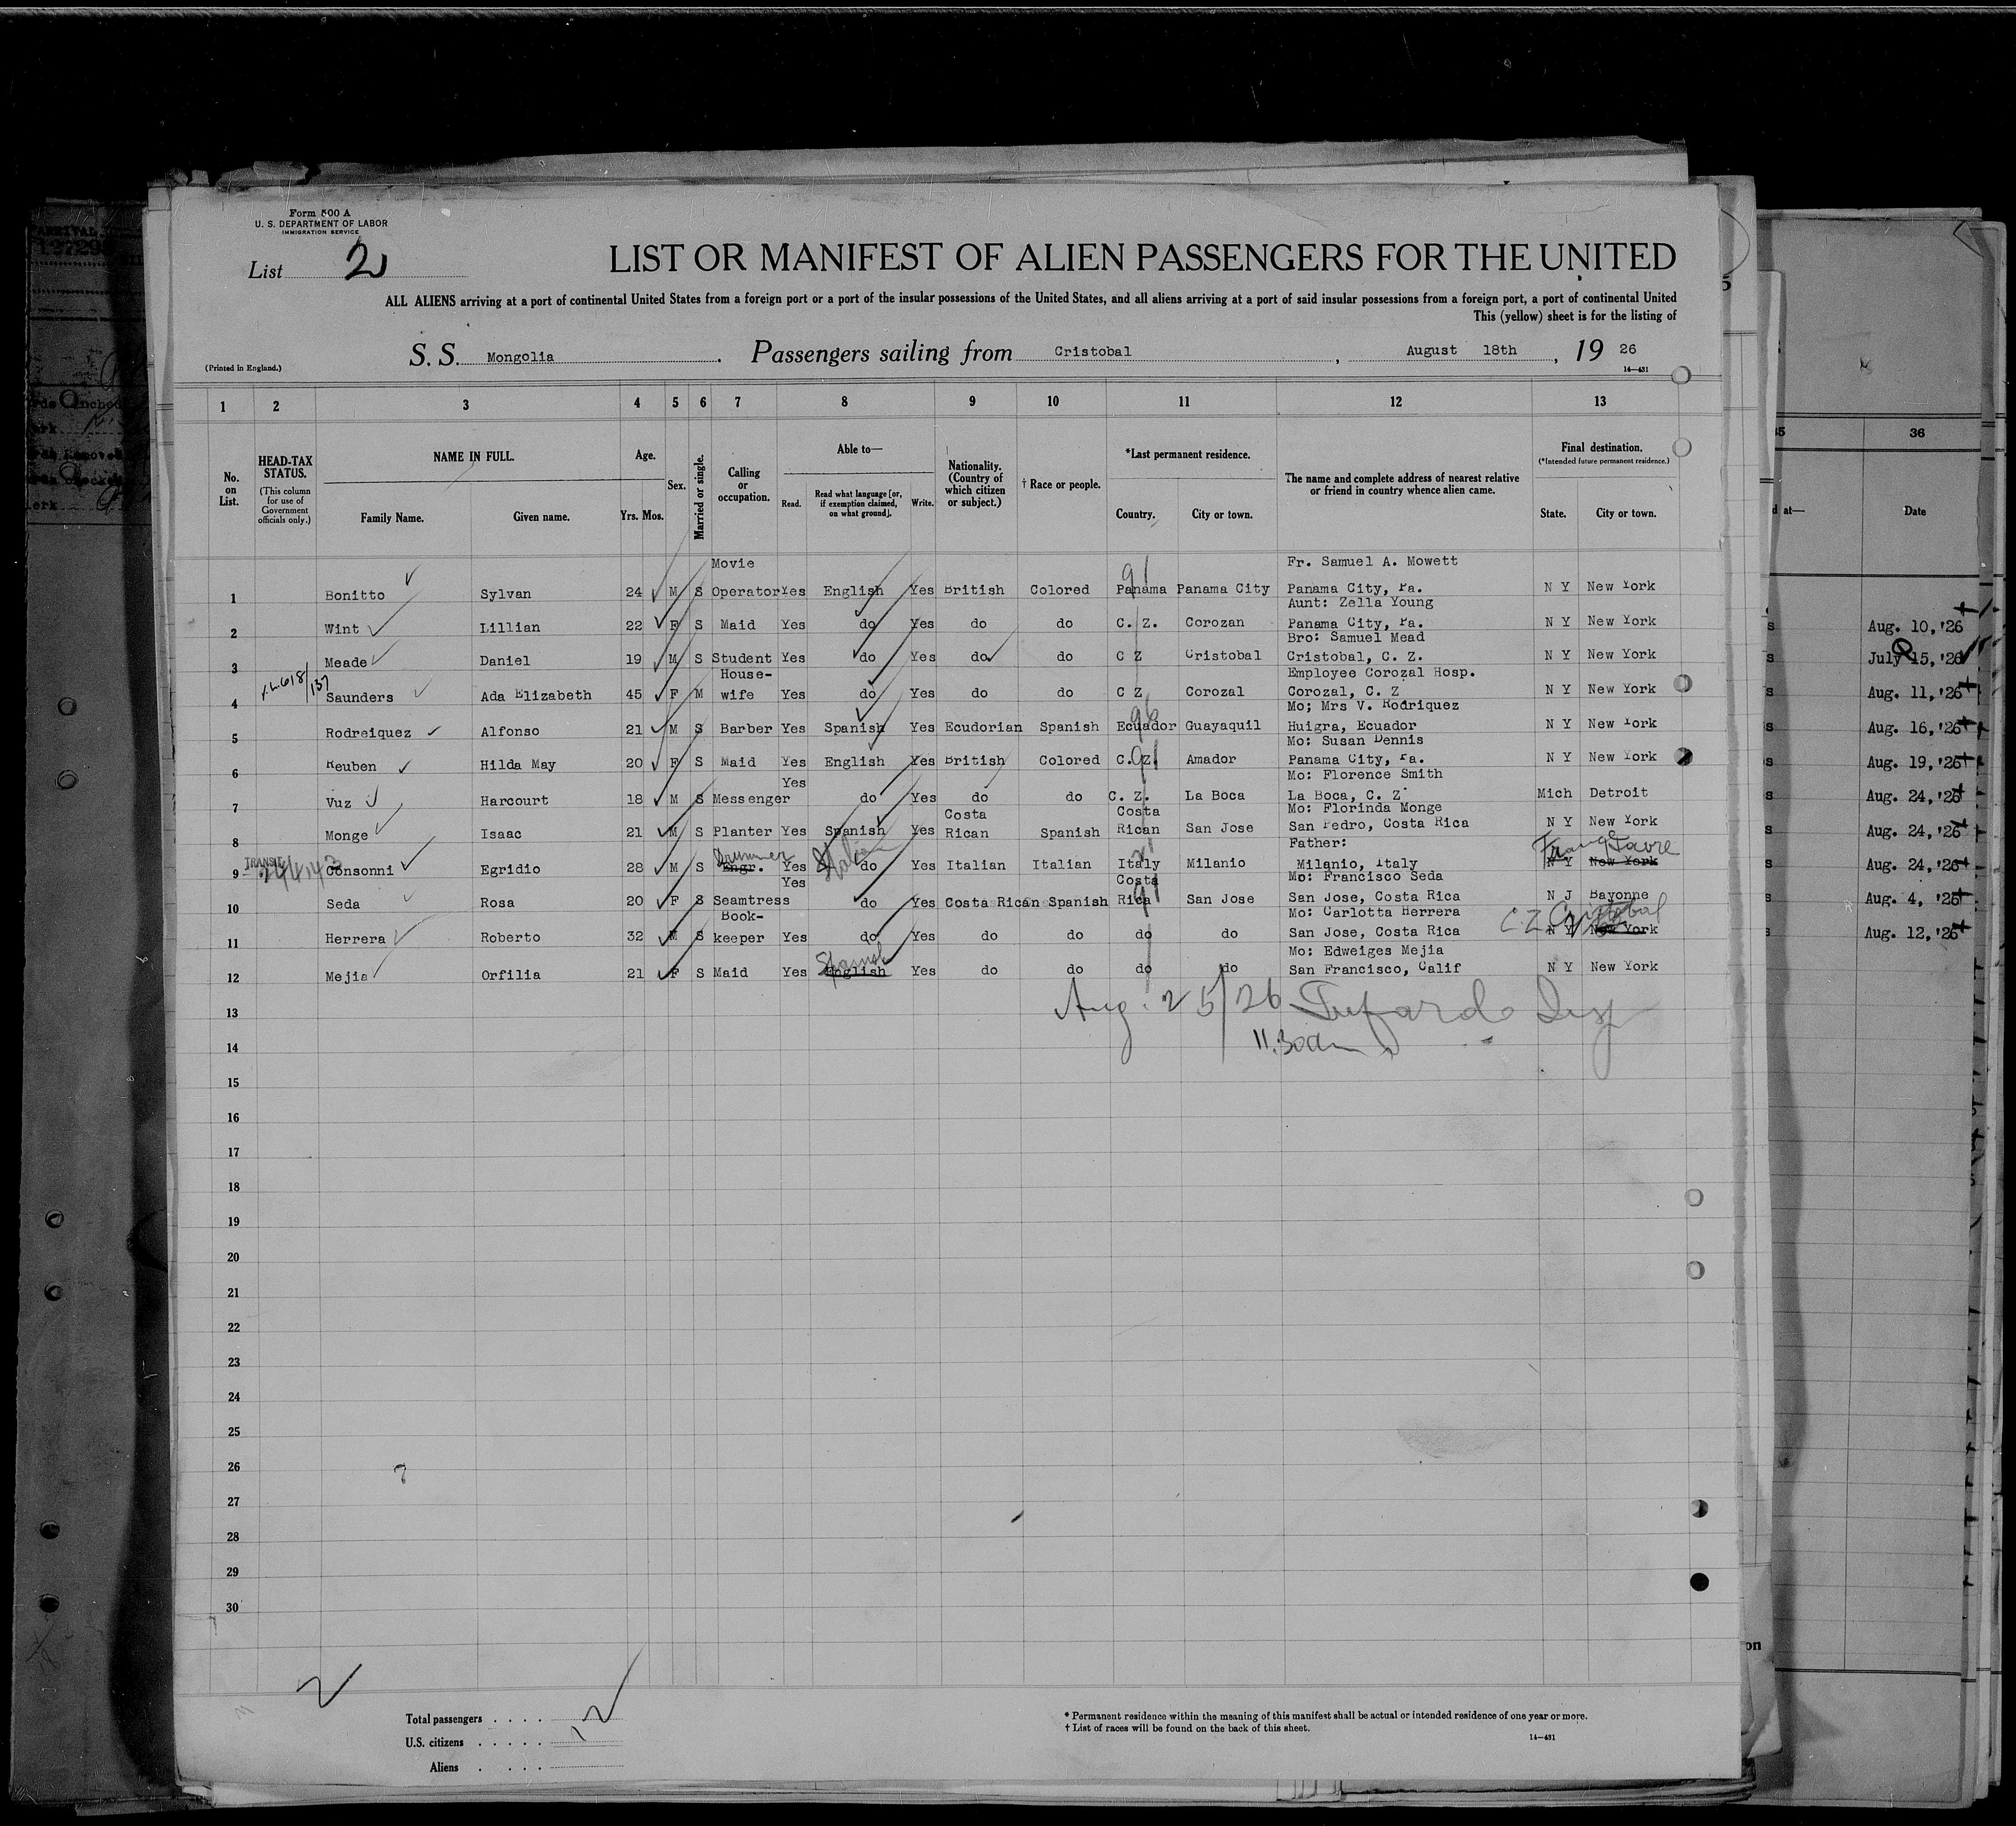 Form 500 A
U. S. DEPARTMENT OF LABOR
IMMIGRATION SERVICE
List 2
LIST OR MANIFEST OF ALIEN PASSENGERS FOR THE UNITED
ALL ALIENS arriving at a port of continental United States from a foreign port or a port of the insular possessions of the United States, and all aliens arriving at a port of said insular possessions from a foreign port, a port of continental United
This (yellow) sheet is for the listing of
S. S. Mongolia. Passengers sailing from Cristobal, August 18th, 19 26
(Printed in England.) 14—431
1 2 3 4 5 6 7 8 9 10 11 12 13
No. on List. HEAD-TAX STATUS. (This column for use of Government officials only.) NAME IN FULL. Family Name. Given name. Age. Yrs. Mos. Sex. Married or single. Calling or occupation. Able to— Read. Read what language [or, if exemption claimed, on what ground]. Write. Nationality. (Country of which citizen or subject.) † Race or people. *Last permanent residence. Country. City or town. The name and complete address of nearest relative or friend in country whence alien came. Final destination. (*Intended future permanent residence.) State. City or town.
Movie Fr. Samuel A. Mowett
1 Bonitto Sylvan 24 M S Operator Yes English Yes British Colored Panama Panama City Panama City, Pa. N Y New York
Aunt: Zella Young
2 Wint Lillian 22 F S Maid Yes do Yes do do C. Z. Corozan Panama City, Pa. N Y New York
Bro: Samuel Mead
3 Meade Daniel 19 M S Student Yes do Yes do do C Z Cristobal Cristobal, C. Z. N Y New York
House- Employee Corozal Hosp.
4 Saunders Ada Elizabeth 45 F M wife Yes do Yes do do C Z Corozal Corozal, C. Z N Y New York
Mo; Mrs V. Rodriquez
5 Rodreiquez Alfonso 21 M S Barber Yes Spanish Yes Ecudorian Spanish Ecuador Guayaquil Huigra, Ecuador N Y New York
Mo: Susan Dennis
6 Reuben Hilda May 20 F S Maid Yes English Yes British Colored C. Z. Amador Panama City, Pa. N Y New York
Yes Mo: Florence Smith
7 Vuz Harcourt 18 M S Messenger do Yes do do C. Z. La Boca La Boca, C. Z Mich Detroit
Costa Costa Mo: Florinda Monge
8 Monge Isaac 21 M S Planter Yes Spanish Yes Rican Spanish Rican San Jose San Pedro, Costa Rica N Y New York
TRANSIT Drummer Italian Father: France Havre
9 Consonni Egridio 28 M S Engr. Yes do Yes Italian Italian Italy Milanio Milanio, Italy N Y New York
Yes Costa Mo: Francisco Seda
10 Seda Rosa 20 F S Seamtress do Yes Costa Rican Spanish Rica San Jose San Jose, Costa Rica N J Bayonne
Book- Mo: Carlotta Herrera C. Z. Cristobal
11 Herrera Roberto 32 M S keeper Yes do Yes do do do do San Jose, Costa Rica N Y New York
Spanish Mo: Edweiges Mejia
12 Mejia Orfilia 21 F S Maid Yes English Yes do do do do San Francisco, Calif N Y New York
13 Aug. 25/26
14 11.30am
15
16
17
18
19
20
21
22
23
24
25
26
27
28
29
30
Total passengers 12
U.S. citizens
Aliens
* Permanent residence within the meaning of this manifest shall be actual or intended residence of one year or more.
† List of races will be found on the back of this sheet.
14—431
36
Date
Aug. 10, '26
July 15, '26
Aug. 11, '26
Aug. 16, '26
Aug. 19, '26
Aug. 24, '26
Aug. 24, '26
Aug. 24, '26
Aug. 4, '26
Aug. 12, '26